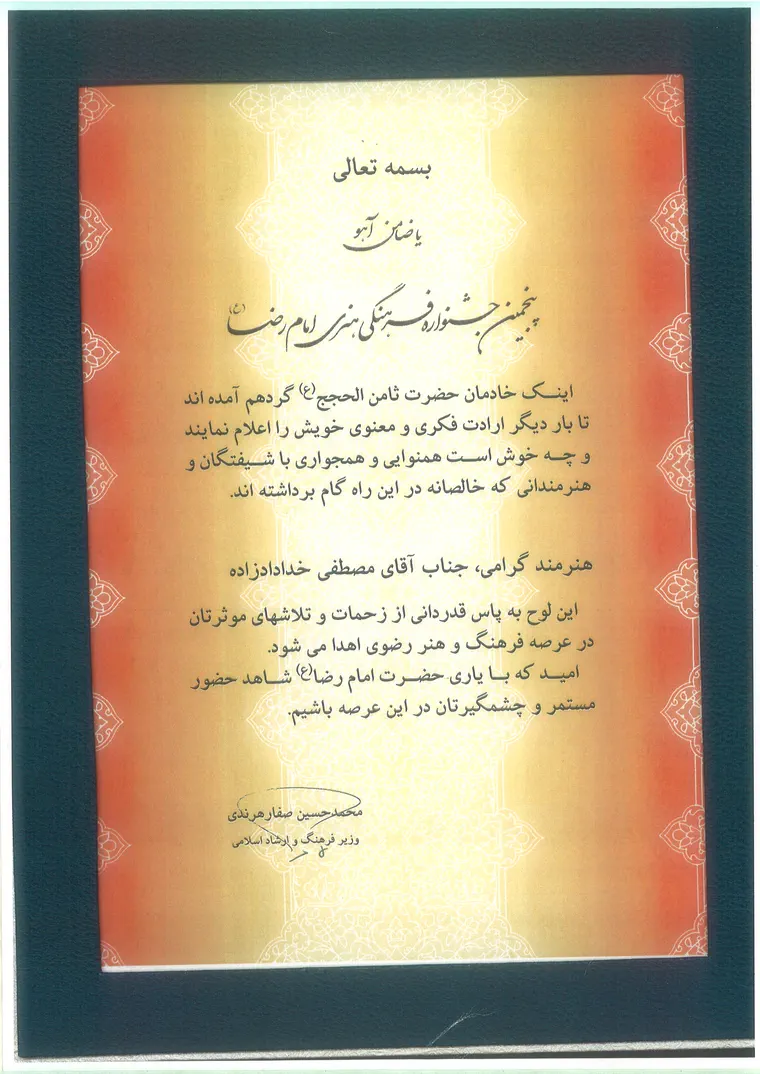 بسمه تعالی
یا ضامن آهو
پنجمین جشنواره فرهنگی هنری امام رضا (ع)
اینک خادمان حضرت ثامن الحجج(ع) گردهم آمده اند
تا بار دیگر ارادت فکری و معنوی خویش را اعلام نمایند
و چه خوش است همنوایی و همجواری با شیفتگان و
هنرمندانی که خالصانه در این راه گام برداشته اند.
هنرمند گرامی، جناب آقای مصطفی خدادادزاده
این لوح به پاس قدردانی از زحمات و تلاشهای موثرتان
در عرصه فرهنگ و هنر رضوی اهدا می شود.
امید که با یاری حضرت امام رضا(ع) شاهد حضور
مستمر و چشمگیرتان در این عرصه باشیم.
محمدحسین صفارهرندی
وزیر فرهنگ و ارشاد اسلامی